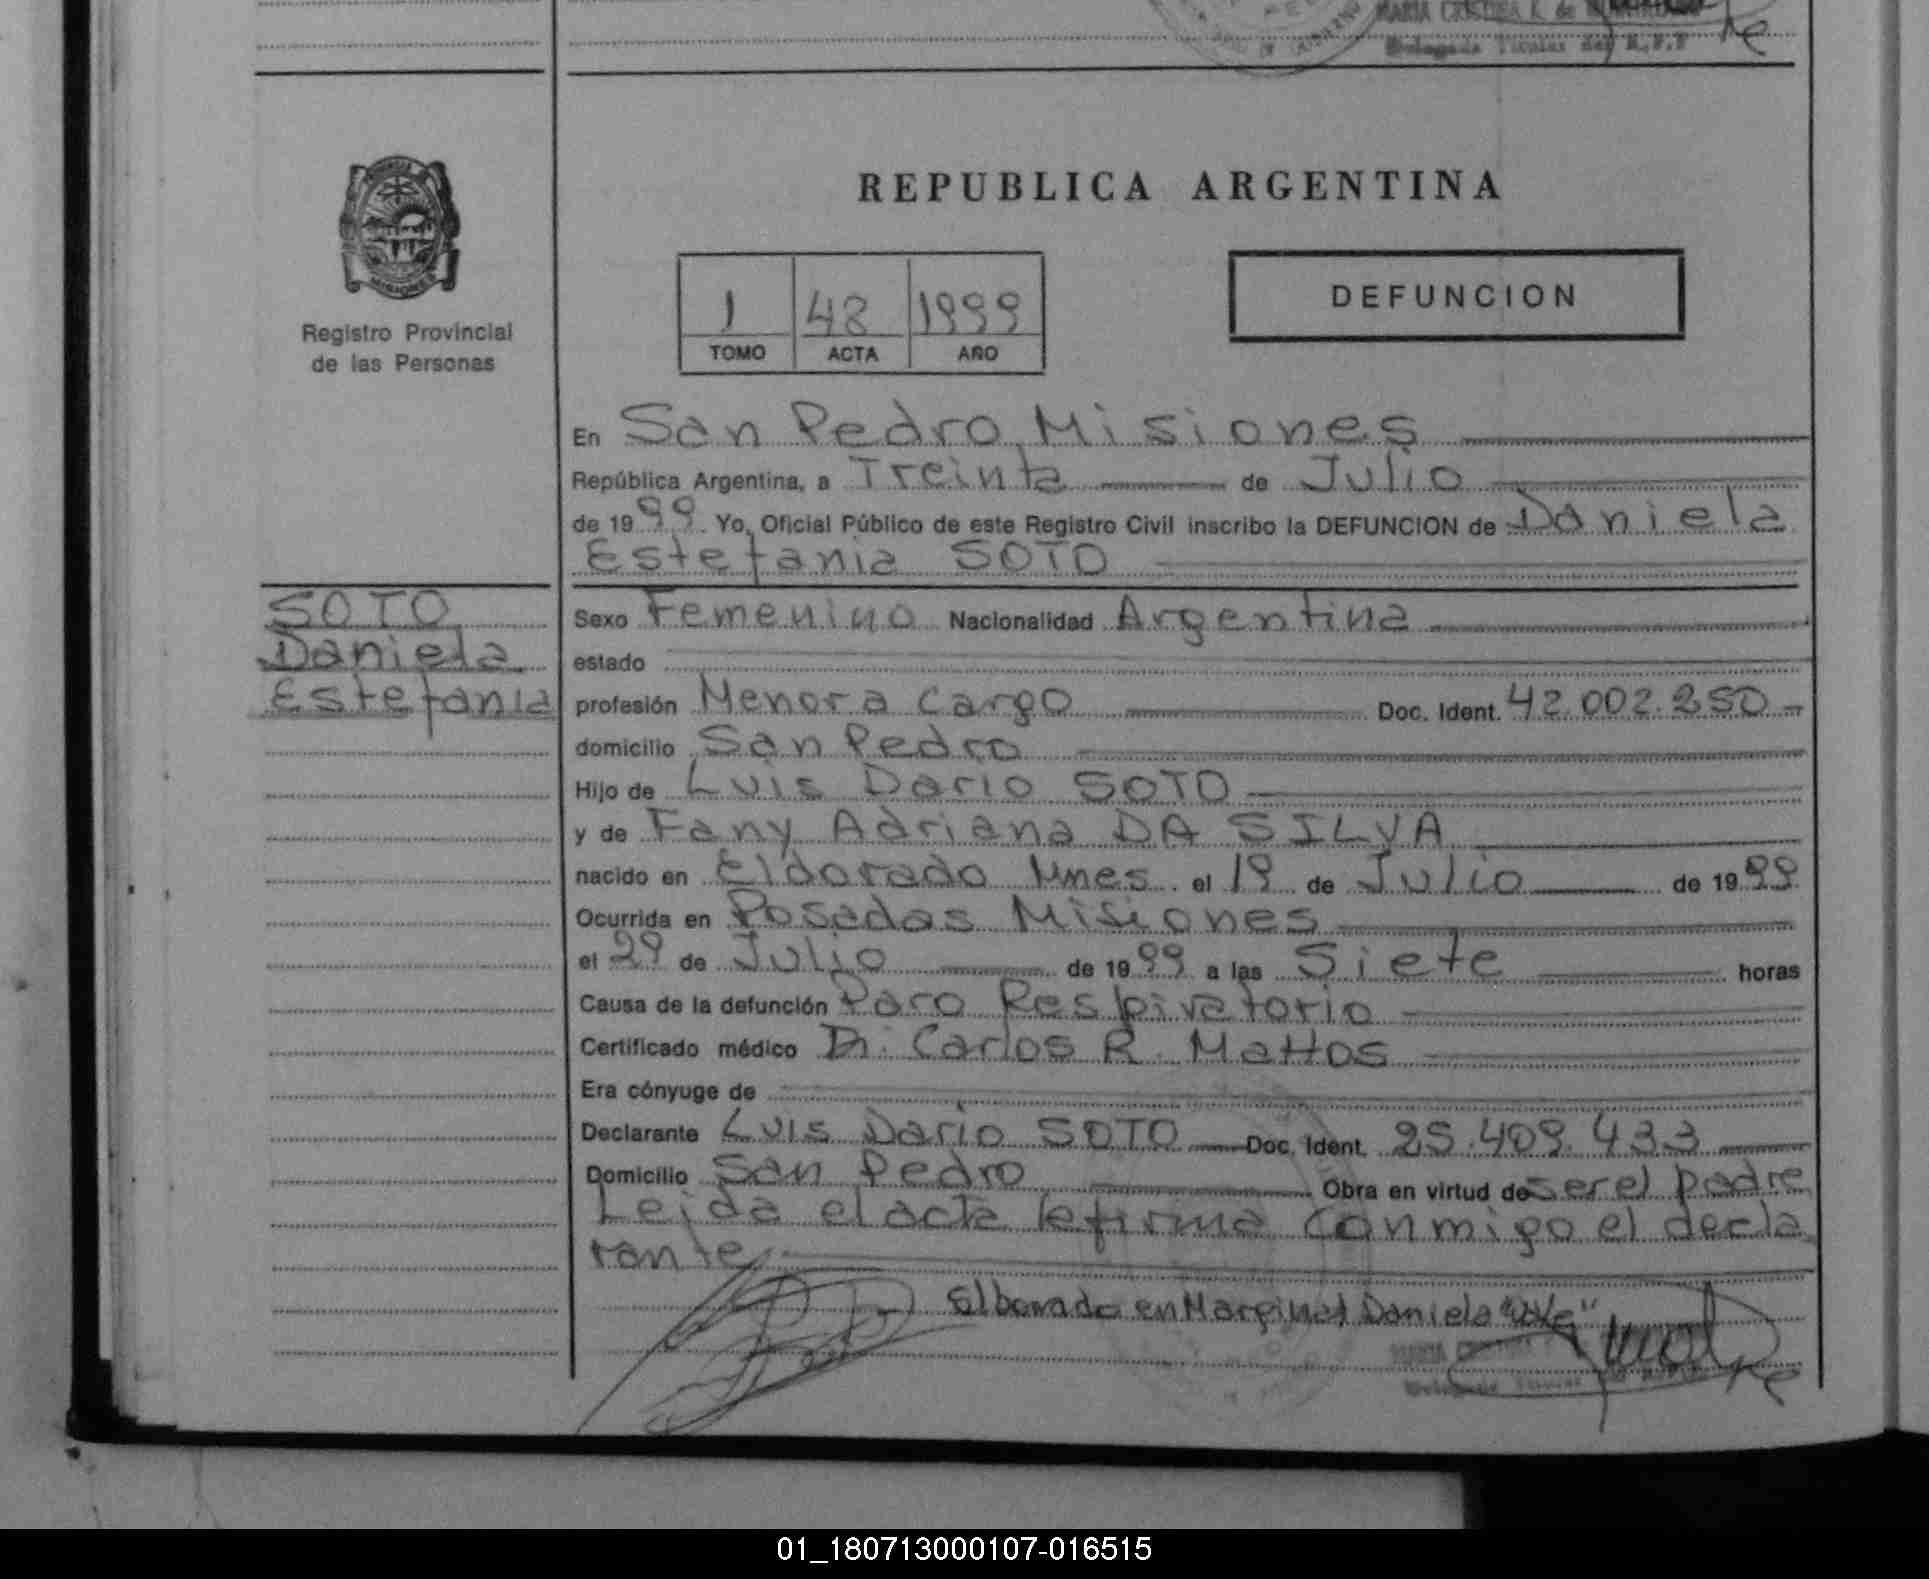 MARIA CRISTINA K. de
Delegada Titular del R.P.P
PROVINCIA
MISIONES
Registro Provincial
de las Personas
REPUBLICA ARGENTINA
1 48 1999
TOMO ACTA AÑO
DEFUNCION
En San Pedro Misiones
República Argentina, a Treinta de Julio
de 1999 Yo, Oficial Público de este Registro Civil inscribo la DEFUNCION de Daniela
Estefania SOTO
SOTO
Daniela
Estefania
Sexo Femenino Nacionalidad Argentina
estado
profesión Menor a cargo Doc. Ident. 42.002.250
domicilio San Pedro
Hijo de Luis Dario SOTO
y de Fany Adriana DA SILVA
nacido en Eldorado Mnes el 19 de Julio de 1999
Ocurrida en Posadas Misiones
el 29 de Julio de 1999 a las Siete horas
Causa de la defunción Paro Respiratorio
Certificado médico Dr. Carlos R. Mattos
Era cónyuge de
Declarante Luis Dario SOTO Doc. Ident. 25.409.433
Domicilio San Pedro Obra en virtud de ser el padre
Leida el acta la firma conmigo el decla
rante
El borrado en Marginal Daniela "Vale"